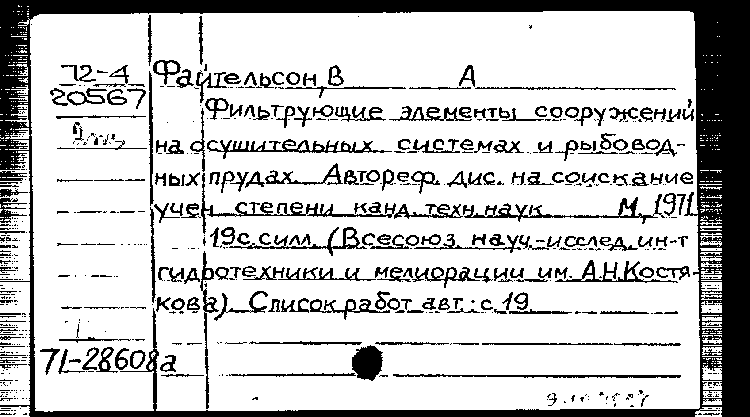 72-4
20567
Файтельсон, В А
Фильтрующие элементы сооружений
на осушительных системах и рыбовод-
ных прудах. Автореф. дис. на соискание
учен степени канд. техн. наук М., 1971
19с. силл. (Всесоюз. науч.-исслед. ин-т
гидротехники и мелиорации им. А.Н.Костя-
кова). Список работ авт.: с. 19
71-28608а